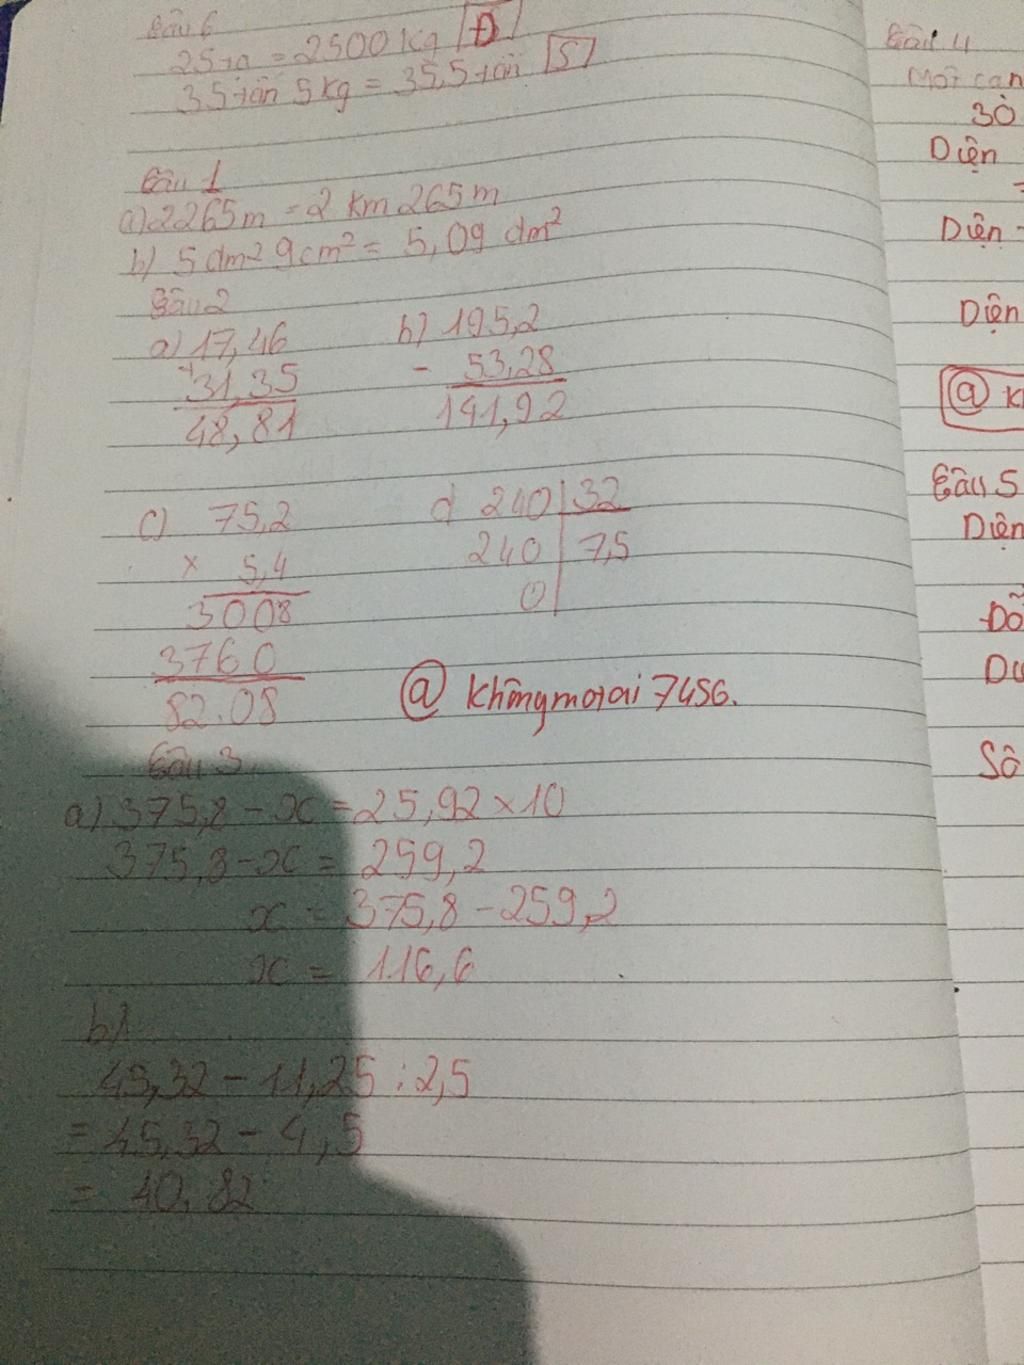 Câu 6
25 tạ = 2500 kg Đ
35 tấn 5 kg = 35,5 tấn S
Câu 1
a) 2265m = 2 km 265 m
b) 5 dm² 9 cm² = 5,09 dm²
Câu 2
a) 17,46
+
31,35
48,81
b) 195,2
- 53,28
141,92
c) 75,2
x 5,4
3008
3760
82.08
d 240 32
240 7,5
0
@ khôngmotai 7456.
Câu 3
a) 375,8 - x = 25,92 x 10
375,8 - x = 259,2
x = 375,8 - 259,2
x = 116,6
b)
45,32 - 11,25 : 2,5
= 45,32 - 4,5
= 40,82
Câu 4
Một
30
Diện
=
Diện
Diện
@ k
Câu 5
Diện
Số